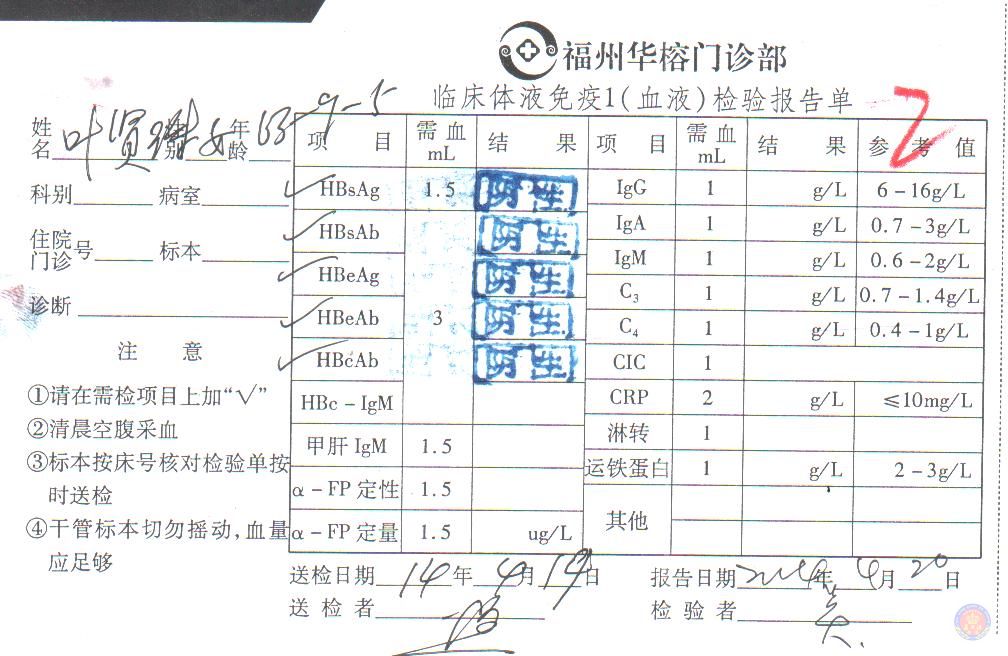 福州华榕门诊部
9-5
临床体液免疫1(血液)检验报告单
姓名 叶贤 性别 女 年龄 63
科别 病室
住院门诊号 标本
诊断
注 意
①请在需检项目上加“√”
②清晨空腹采血
③标本按床号核对检验单按
时送检
④干管标本切勿摇动,血量
应足够
项 目 需血mL 结 果 项 目 需血mL 结 果 参考值
2
√ HBsAg 1.5 阴性 IgG 1 g/L 6-16g/L
√ HBsAb 阴性 IgA 1 g/L 0.7-3g/L
√ HBeAg 阴性 IgM 1 g/L 0.6-2g/L
C3 1 g/L 0.7-1.4g/L
√ HBeAb 3 阴性 C4 1 g/L 0.4-1g/L
√ HBcAb 阴性 CIC 1
HBc-IgM CRP 2 g/L ≤10mg/L
甲肝IgM 1.5 淋转 1
α-FP定性 1.5 运铁蛋白 1 g/L 2-3g/L
α-FP定量 1.5 ug/L 其他
送检日期 14年4月19日 报告日期 2014年4月20日
送检者 检验者